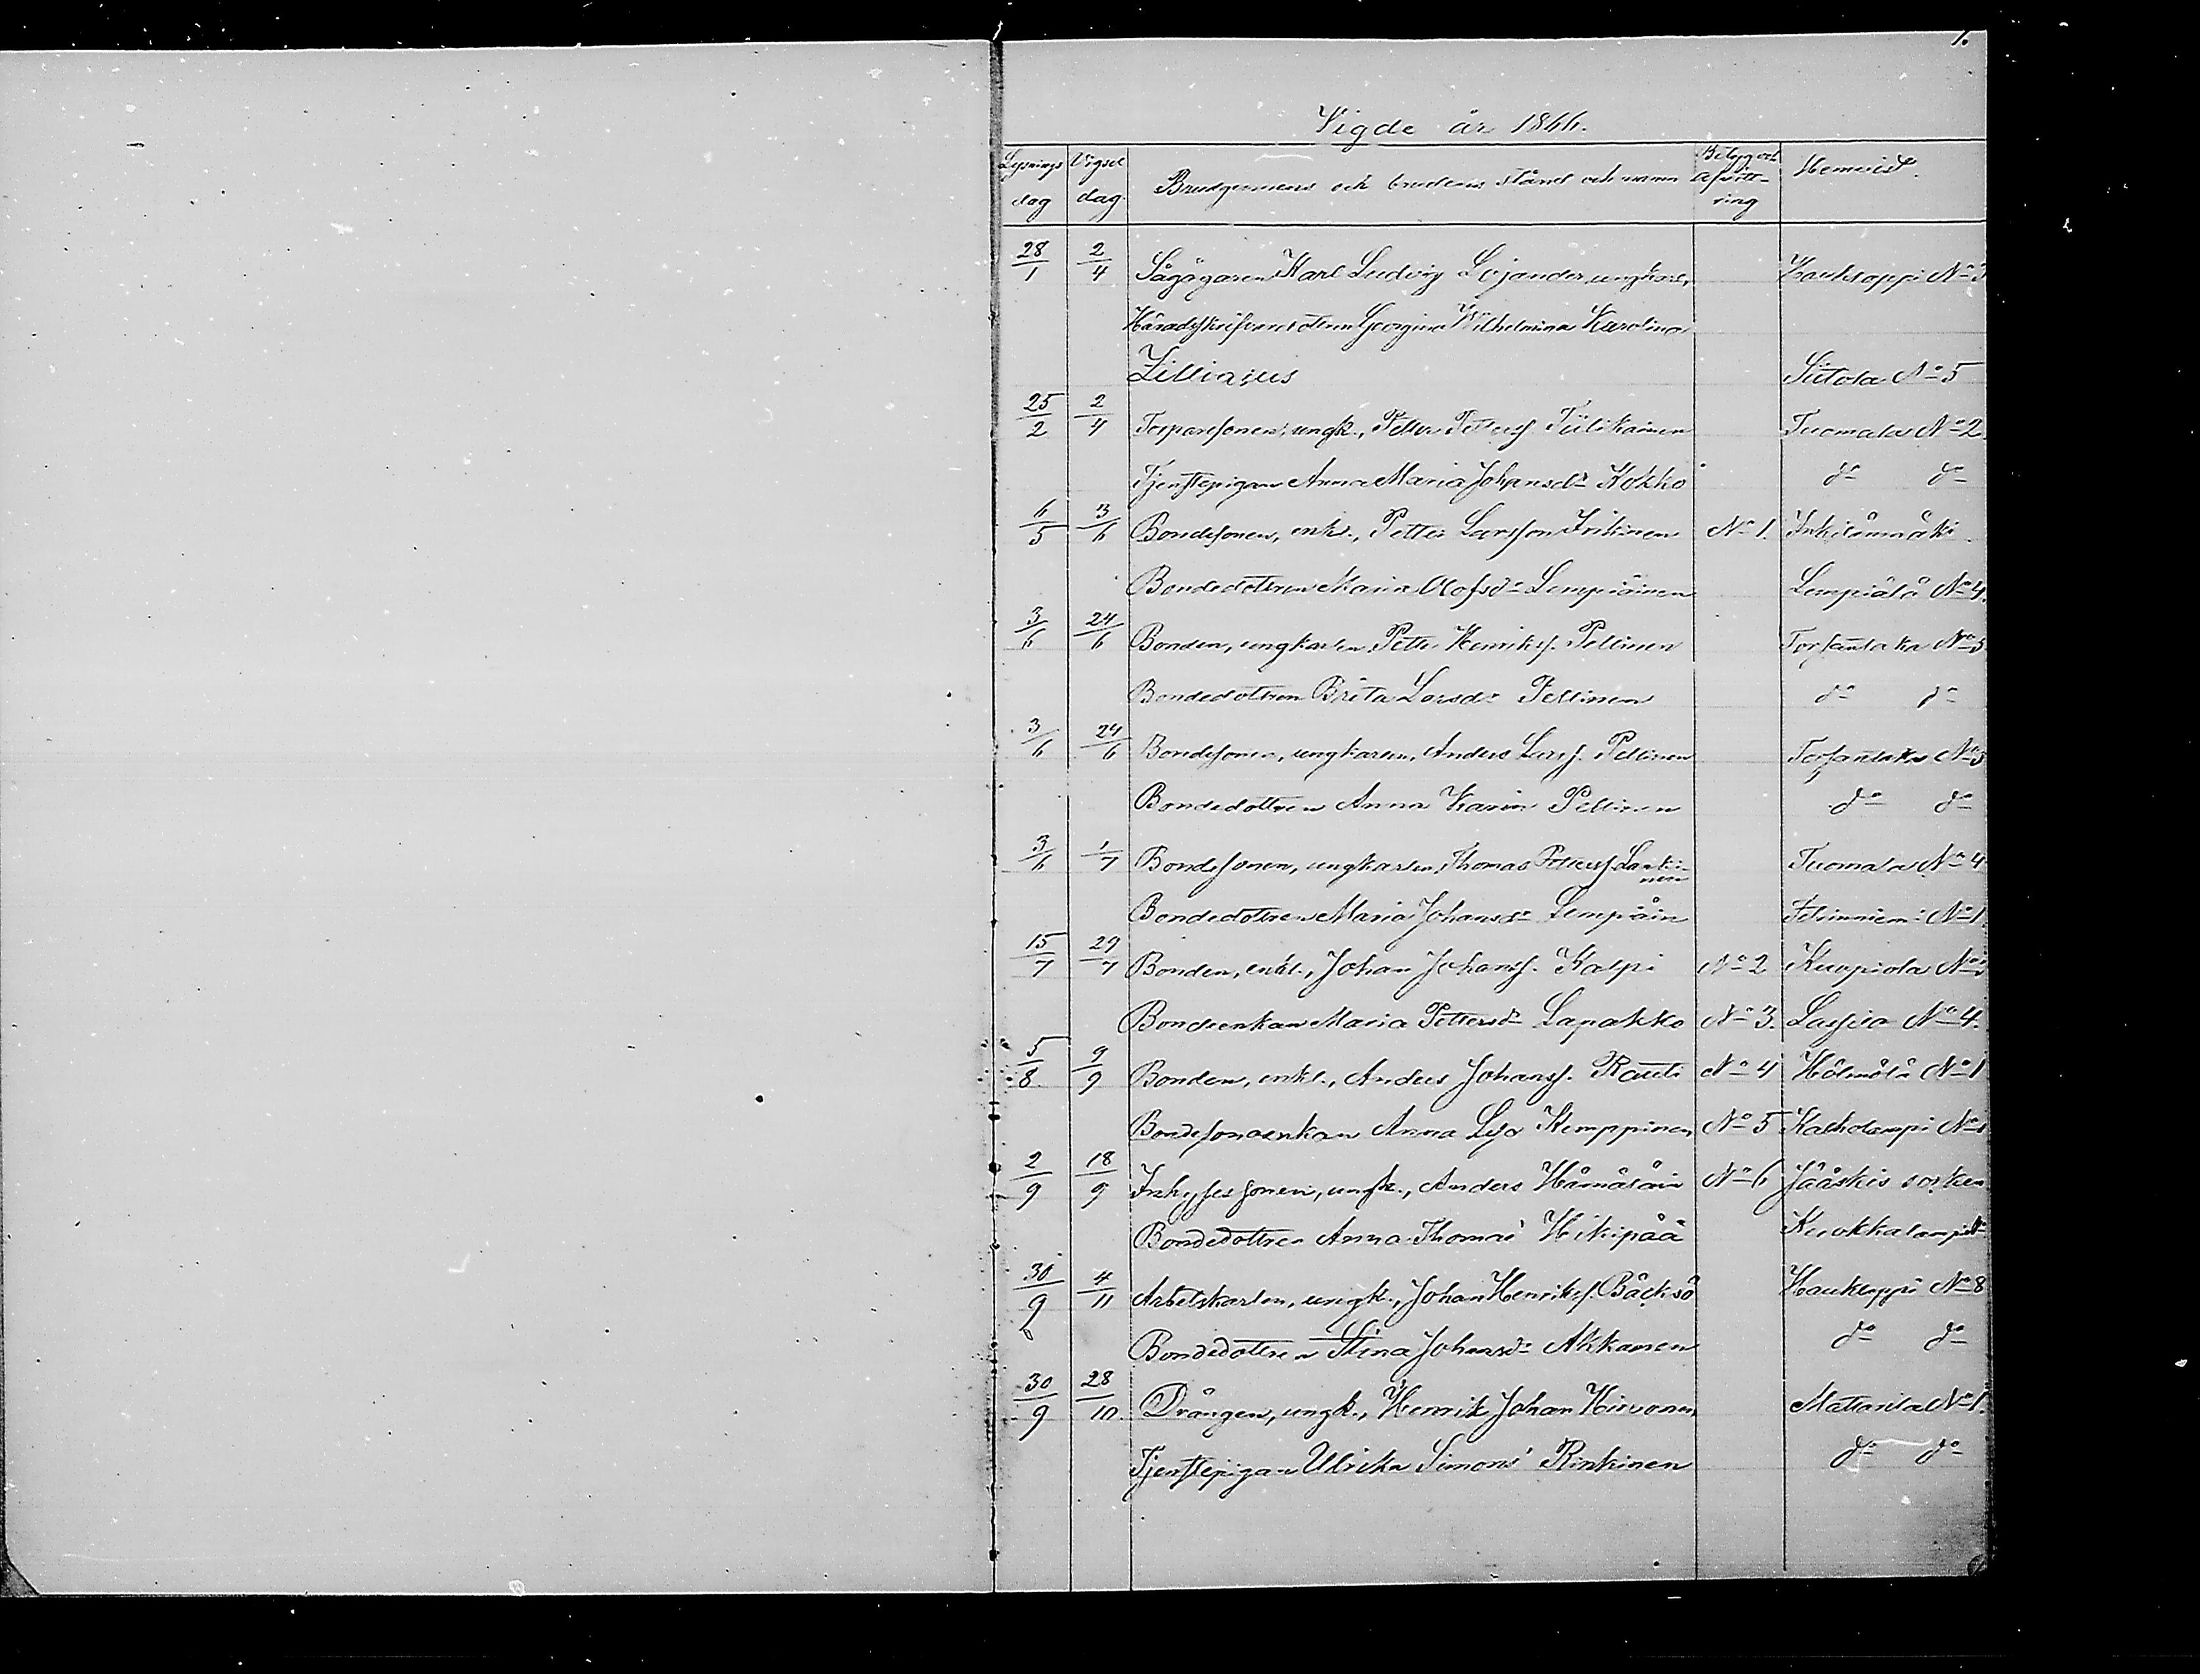 1.
Vigde år 1866.
Lysnings dag Vigsel dag Brudgummens och brudens stånd och namn Betyg och afvittring Hemvist.
28/1 2/4 Sågägaren Karl Ludvig Lojander, ungkarl, Haukloppi No 3
Häradsskrifvaredottren Georgina Wilhelmina Karolina
Zilliacus Siitola No 5
25/2 2/4 Torparesonen, ungk., Petter Petterss. Tiilikainen Tuomala No 2
Tjenstepigan Anna Maria Johansdr Kokko do do
6/5 3/6 Bondesonen, enkl., Petter Larsson Inkinen No 1. Inkilänmäki
Bondedottren Maria Olofsdr Lempiäinen Lempiälä No 4.
3/6 24/6 Bonden, ungkarlen Petter Henrikss. Pellinen Torsansaka No 5
Bondedottren Brita Larsdr Pellinen do do
3/6 24/6 Bondesonen, ungkarlen, Anders Larss. Pellinen Torsansaka No 3
Bondedottren Anna Karin Pellinen do do
3/6 1/7 Bondesonen, ungkarlen, Thomas Petterss. Lankinen Tuomala No 4
Bondedottren Maria Johansdr Lempiäin No 1
15/7 29/7 Bonden, enkl., Johan Johanss. Kalpi No 2 Kurpiola
Bondeenkan Maria Pettersdr Lapakko No 3. Lassila No 4.
5/8 9/9 Bonden, enkl., Anders Johanss. Rauti No 4 Hölmölä No 1
Bondesonaenkan Anna Lisa Kemppinen No 5 Kalholampi No 1
2/9 18/9 Inhysessonen, ungk., Anders Hämäläin No 6 Jääskis socken
Bondedottren Anna Thomas' Hikipää Kuokkalampi
30/9 4/11 Arbetskarlen, ungk., Johan Henrikss. Bäcksö Haukloppi No 8
Bondedottren Stina Johansdr Akkanen do do
30/9 28/10. Drängen, ungk., Henrik Johan Hirvonen, Mattarila No 1.
Tjenstepigan Ulrika Simons' Rinkinen do do